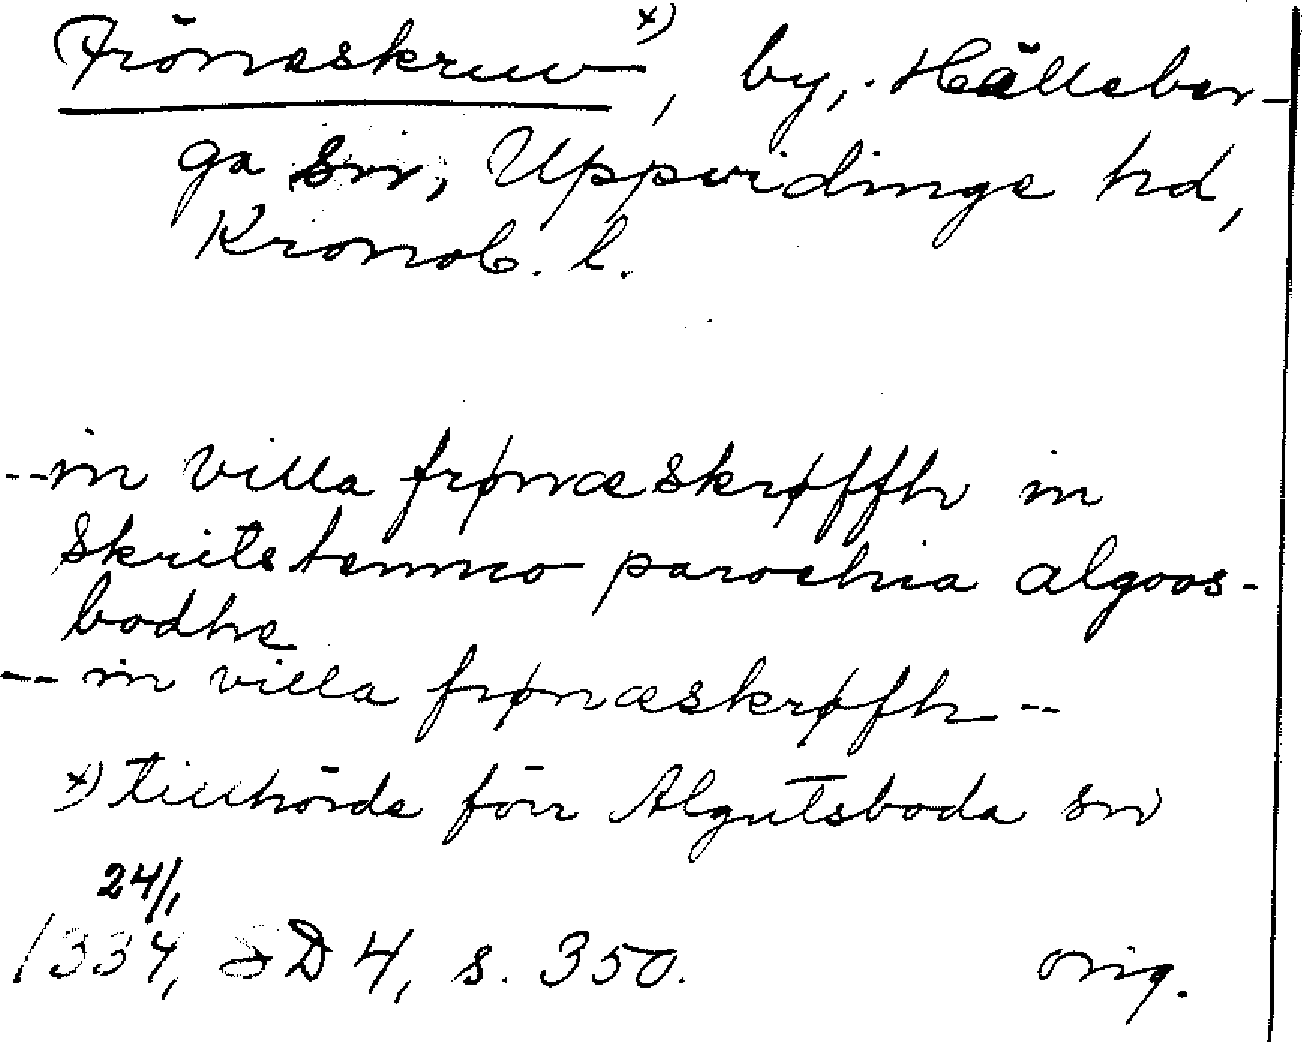 Frönaskruv x), by, Hälleber-
ga sn, Uppvidinge hd,
Kronob. l.
-- in villa frønæskrøffh in
skritstenmo parochia algoos-
bodhe
-- in villa frønæskrøfh --
x) tillhörde förr Algutsboda sn
24/1
1334, SD 4, s. 350. orig.